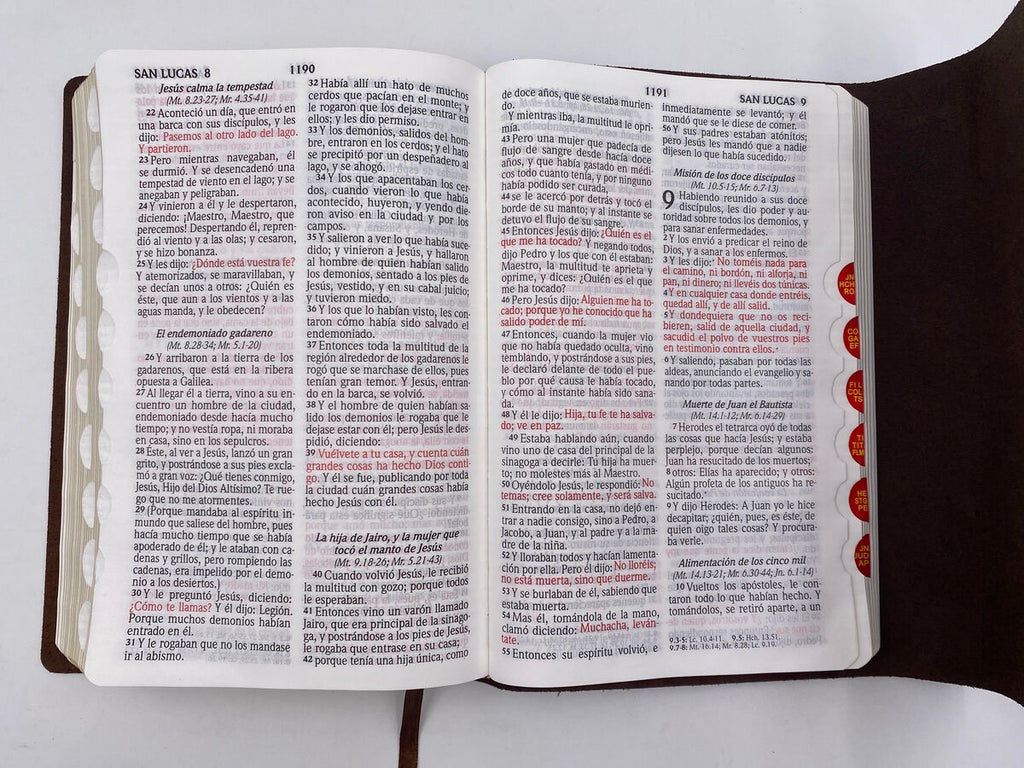 SAN LUCAS 8
1190
Jesús calma la tempestad
(Mt. 8.23-27; Mr. 4.35-41)
22 Aconteció un día, que entró en
una barca con sus discípulos, y les
dijo: Pasemos al otro lado del lago.
Y partieron.
23 Pero mientras navegaban, él
se durmió. Y se desencadenó una
tempestad de viento en el lago; y se
anegaban y peligraban.
24 Y vinieron a él y le despertaron,
diciendo: ¡Maestro, Maestro, que
perecemos! Despertando él, repren-
dió al viento y a las olas; y cesaron,
y se hizo bonanza.
25 Y les dijo: ¿Dónde está vuestra fe?
Y atemorizados, se maravillaban, y
se decían unos a otros: ¿Quién es
éste, que aun a los vientos y a las
aguas manda, y le obedecen?
El endemoniado gadareno
(Mt. 8.28-34; Mr. 5.1-20)
26 Y arribaron a la tierra de los
gadarenos, que está en la ribera
opuesta a Galilea.
27 Al llegar él a tierra, vino a su en-
cuentro un hombre de la ciudad,
endemoniado desde hacía mucho
tiempo; y no vestía ropa, ni moraba
en casa, sino en los sepulcros.
28 Este, al ver a Jesús, lanzó un gran
grito, y postrándose a sus pies excla-
mó a gran voz: ¿Qué tienes conmigo,
Jesús, Hijo del Dios Altísimo? Te rue-
go que no me atormentes.
29 (Porque mandaba al espíritu in-
mundo que saliese del hombre, pues
hacía mucho tiempo que se había
apoderado de él; y le ataban con ca-
denas y grillos, pero rompiendo las
cadenas, era impelido por el demo-
nio a los desiertos.)
30 Y le preguntó Jesús, diciendo:
¿Cómo te llamas? Y él dijo: Legión.
Porque muchos demonios habían
entrado en él.
31 Y le rogaban que no los mandase
ir al abismo.
32 Había allí un hato de muchos
cerdos que pacían en el monte; y
le rogaron que los dejase entrar en
ellos; y les dio permiso.
33 Y los demonios, salidos del hom-
bre, entraron en los cerdos; y el hato
se precipitó por un despeñadero al
lago, y se ahogó.
34 Y los que apacentaban los cer-
dos, cuando vieron lo que había
acontecido, huyeron, y yendo die-
ron aviso en la ciudad y por los
campos.
35 Y salieron a ver lo que había suce-
dido; y vinieron a Jesús, y hallaron
al hombre de quien habían salido
los demonios, sentado a los pies de
Jesús, vestido, y en su cabal juicio;
y tuvieron miedo.
36 Y los que lo habían visto, les con-
taron cómo había sido salvado el
endemoniado.
37 Entonces toda la multitud de la
región alrededor de los gadarenos le
rogó que se marchase de ellos, pues
tenían gran temor. Y Jesús, entran-
do en la barca, se volvió.
38 Y el hombre de quien habían sa-
lido los demonios le rogaba que le
dejase estar con él; pero Jesús le des-
pidió, diciendo:
39 Vuélvete a tu casa, y cuenta cuán
grandes cosas ha hecho Dios conti-
go. Y él se fue, publicando por toda
la ciudad cuán grandes cosas había
hecho Jesús con él.
La hija de Jairo, y la mujer que
tocó el manto de Jesús
(Mt. 9.18-26; Mr. 5.21-43)
40 Cuando volvió Jesús, le recibió
la multitud con gozo; porque todos
le esperaban.
41 Entonces vino un varón llamado
Jairo, que era principal de la sinago-
ga, y postrándose a los pies de Jesús,
le rogaba que entrase en su casa;
42 porque tenía una hija única, como
1191
SAN LUCAS 9
de doce años, que se estaba murien-
do.
Y mientras iba, la multitud le opri-
mía.
43 Pero una mujer que padecía de
flujo de sangre desde hacía doce
años, y que había gastado en médi-
cos todo cuanto tenía, y por ninguno
había podido ser curada,
44 se le acercó por detrás y tocó el
borde de su manto; y al instante se
detuvo el flujo de su sangre.
45 Entonces Jesús dijo: ¿Quién es el
que me ha tocado? Y negando todos,
dijo Pedro y los que con él estaban:
Maestro, la multitud te aprieta y
oprime, y dices: ¿Quién es el que
me ha tocado?
46 Pero Jesús dijo: Alguien me ha to-
cado; porque yo he conocido que ha
salido poder de mí.
47 Entonces, cuando la mujer vio
que no había quedado oculta, vino
temblando, y postrándose a sus pies,
le declaró delante de todo el pue-
blo por qué causa le había tocado,
y cómo al instante había sido sana-
da.
48 Y él le dijo: Hija, tu fe te ha salva-
do; ve en paz.
49 Estaba hablando aún, cuando
vino uno de casa del principal de la
sinagoga a decirle: Tu hija ha muer-
to; no molestes más al Maestro.
50 Oyéndolo Jesús, le respondió: No
temas; cree solamente, y será salva.
51 Entrando en la casa, no dejó en-
trar a nadie consigo, sino a Pedro, a
Jacobo, a Juan, y al padre y a la ma-
dre de la niña.
52 Y lloraban todos y hacían lamenta-
ción por ella. Pero él dijo: No lloréis;
no está muerta, sino que duerme.
53 Y se burlaban de él, sabiendo que
estaba muerta.
54 Mas él, tomándola de la mano,
clamó diciendo: Muchacha, leván-
tate.
55 Entonces su espíritu volvió, e
inmediatamente se levantó; y él
mandó que se le diese de comer.
56 Y sus padres estaban atónitos;
pero Jesús les mandó que a nadie
dijesen lo que había sucedido.
Misión de los doce discípulos
(Mt. 10.5-15; Mr. 6.7-13)
9 Habiendo reunido a sus doce
discípulos, les dio poder y au-
toridad sobre todos los demonios, y
para sanar enfermedades.
2 Y los envió a predicar el reino de
Dios, y a sanar a los enfermos.
3 Y les dijo: No toméis nada para
el camino, ni bordón, ni alforja, ni
pan, ni dinero; ni llevéis dos túnicas.
4 Y en cualquier casa donde entréis,
quedad allí, y de allí salid.
5 Y dondequiera que no os reci-
bieren, salid de aquella ciudad, y
sacudid el polvo de vuestros pies
en testimonio contra ellos.
6 Y saliendo, pasaban por todas las
aldeas, anunciando el evangelio y sa-
nando por todas partes.
Muerte de Juan el Bautista
(Mt. 14.1-12; Mr. 6.14-29)
7 Herodes el tetrarca oyó de todas
las cosas que hacía Jesús; y estaba
perplejo, porque decían algunos:
Juan ha resucitado de los muertos;
8 otros: Elías ha aparecido; y otros:
Algún profeta de los antiguos ha re-
sucitado.
9 Y dijo Herodes: A Juan yo le hice
decapitar; ¿quién, pues, es éste, de
quien oigo tales cosas? Y procura-
ba verle.
Alimentación de los cinco mil
(Mt. 14.13-21; Mr. 6.30-44; Jn. 6.1-14)
10 Vueltos los apóstoles, le con-
taron todo lo que habían hecho. Y
tomándolos, se retiró aparte, a un
9.3-5: Lc. 10.4-11. 9.5: Hch. 13.51.
9.7-8: Mt. 16.14; Mr. 8.28; Lc. 9.19.
JN
HCH
RO
CO
GA
EF
FI L
COL
TS
TI
TIT
FLM
HE
STG
PE
JN
JUD
AP